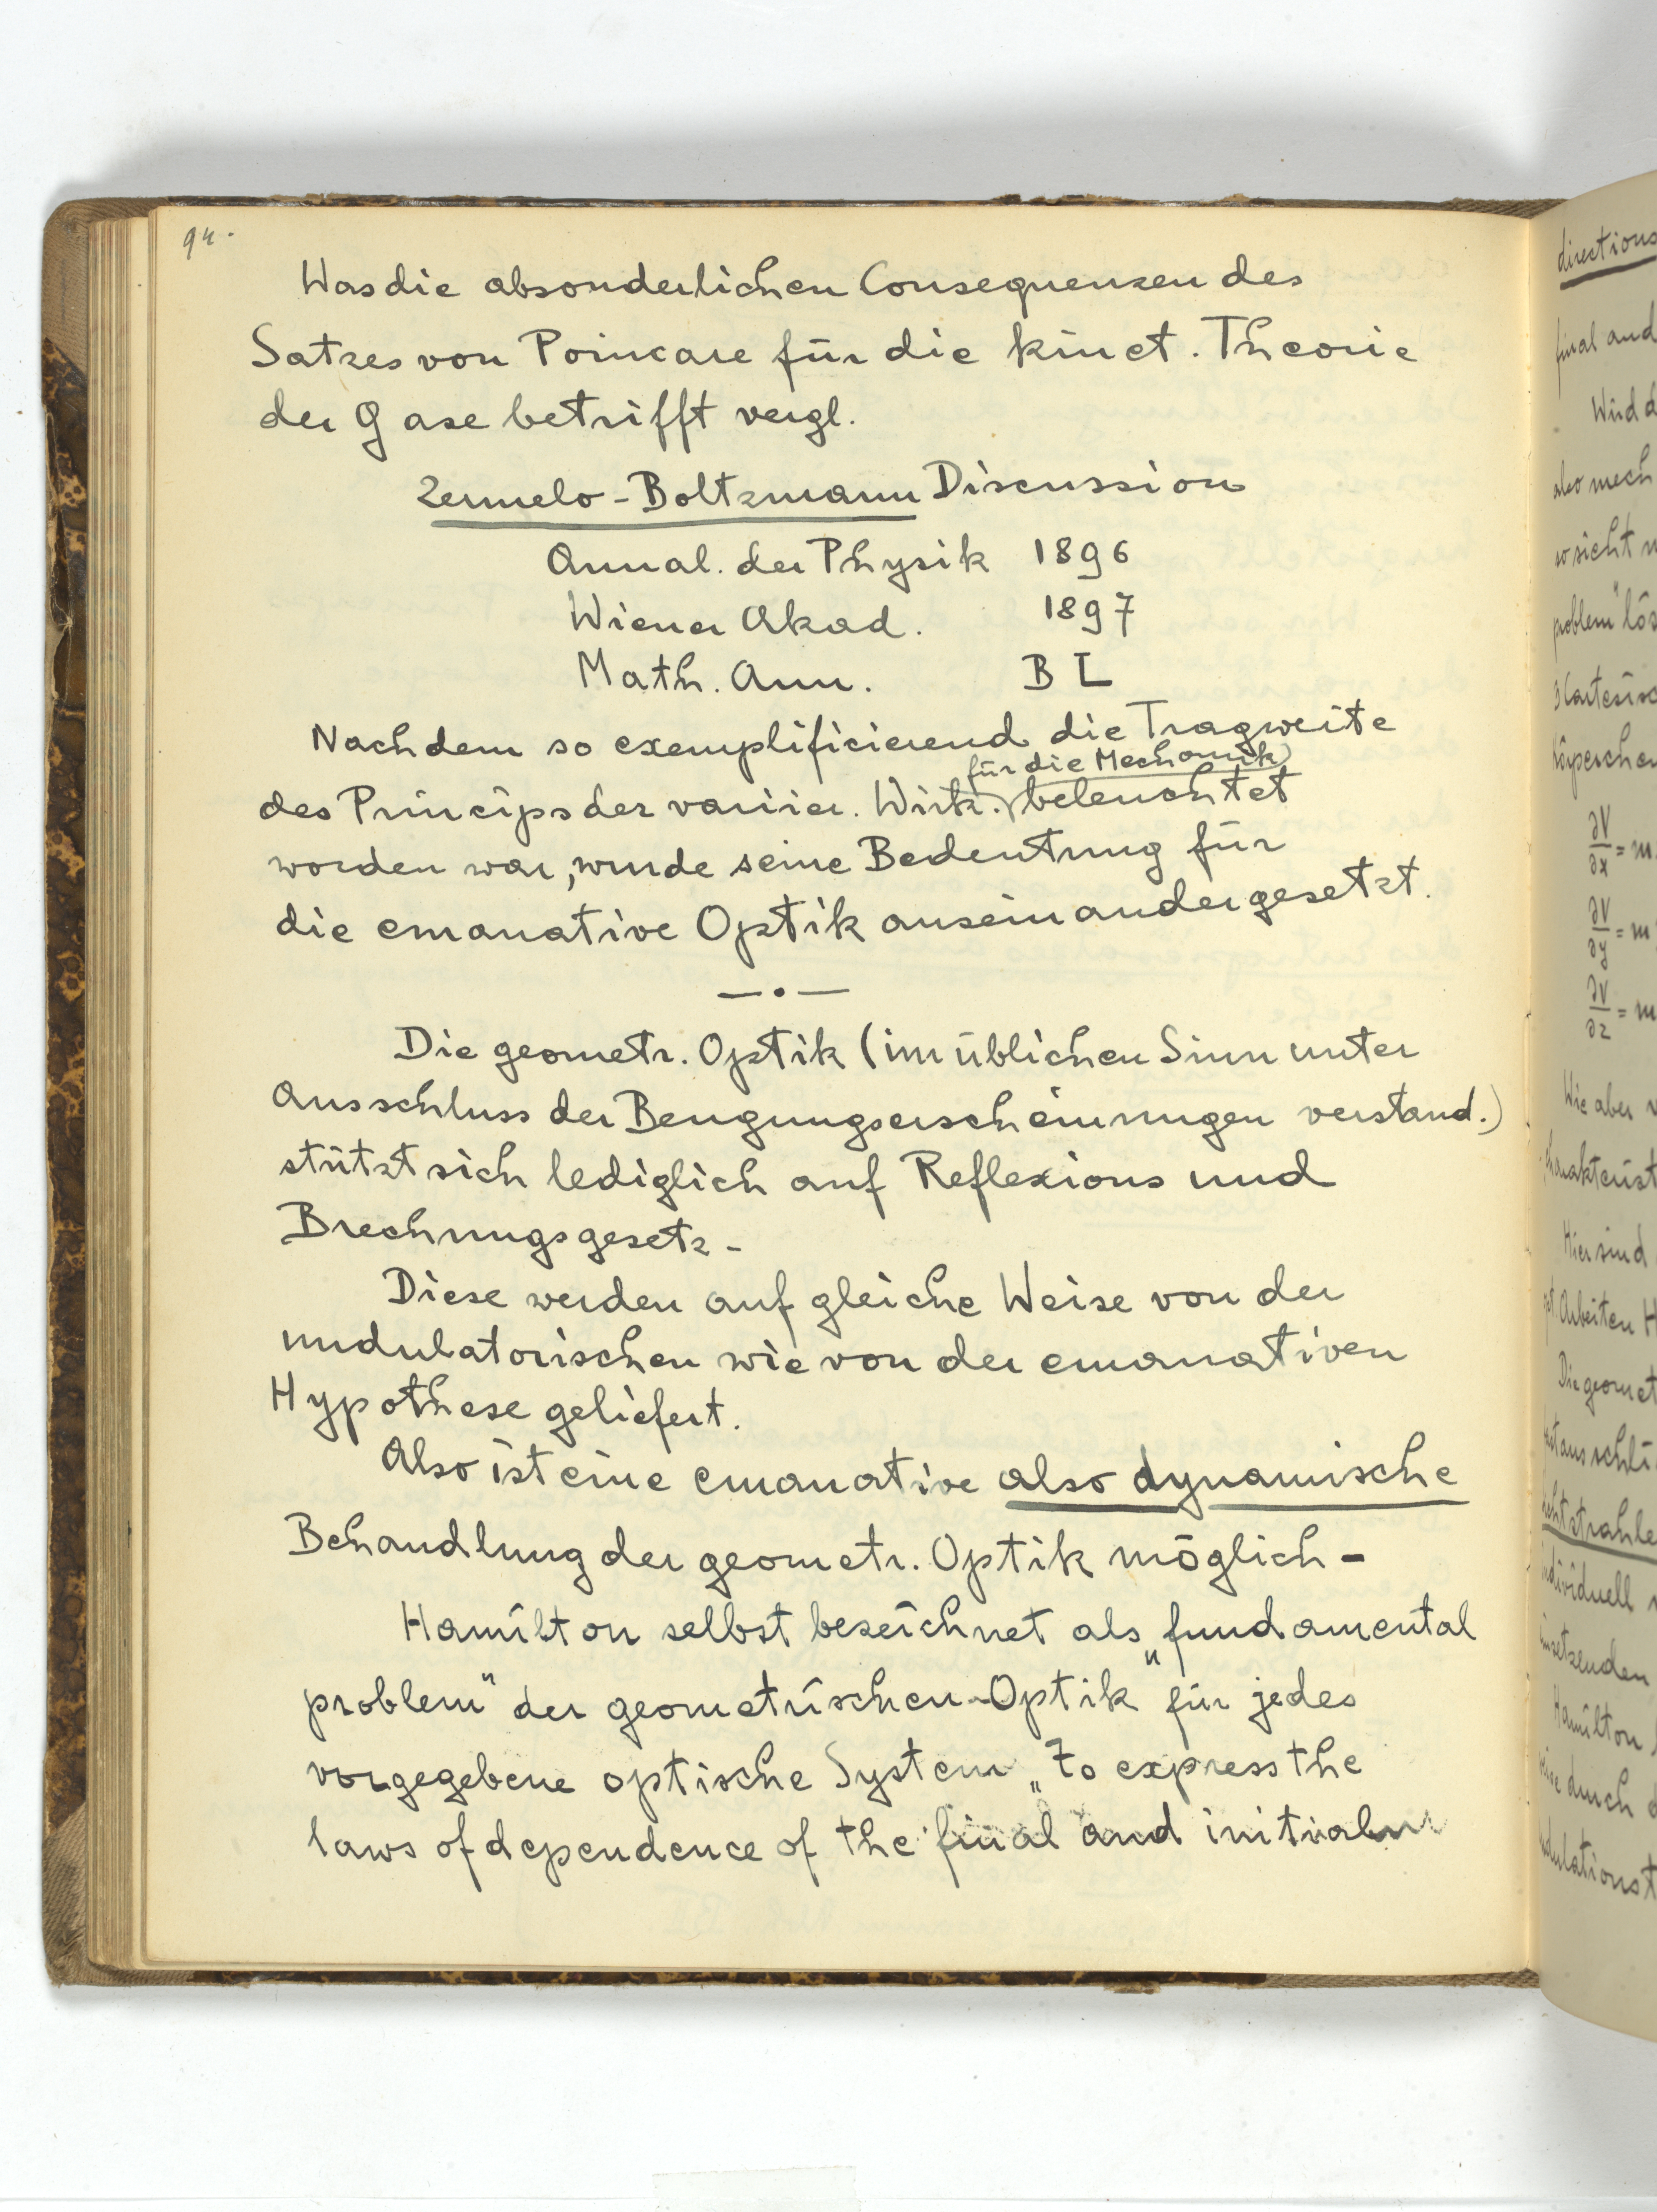 94.
Was die absonderlichen Consequenzen des
Satzes von Poincare für die kinet. Theorie
der Gase betrifft vergl.
Zermelo-Boltzmann Discussion
Annal. der Physik 1896
Wiener Akad. 1897
Math. Ann. B L
Nachdem so exemplificierend die Tragweite
für die Mechanik
des Princips der variier. Wirk. beleuchtet
worden war, wurde seine Bedeutung für
die emanative Optik auseinandergesetzt.
— . —
Die geometr. Optik (im üblichen Sinn unter
Ausschluss der Beugungserscheinungen verstand.)
stützt sich lediglich auf Reflexions und
Brechungsgesetz -
Diese werden auf gleiche Weise von der
undulatorischen wie von der emanativen
Hypothese geliefert.
Also ist eine emanative also dynamische
Behandlung der geometr. Optik möglich -
Hamilton selbst bezeichnet als „fundamental
problem" der geometrischen Optik für jedes
vorgegebene optische System „to express the
laws of dependence of the final and initial
directions
final and
Wird d
also mech
problem" lös
∂V/∂x = m
∂V/∂y = m
∂V/∂z = m
Wie aber
Hier sind
Arbeiten H
Die geomet
individuell
Hamilton
durch